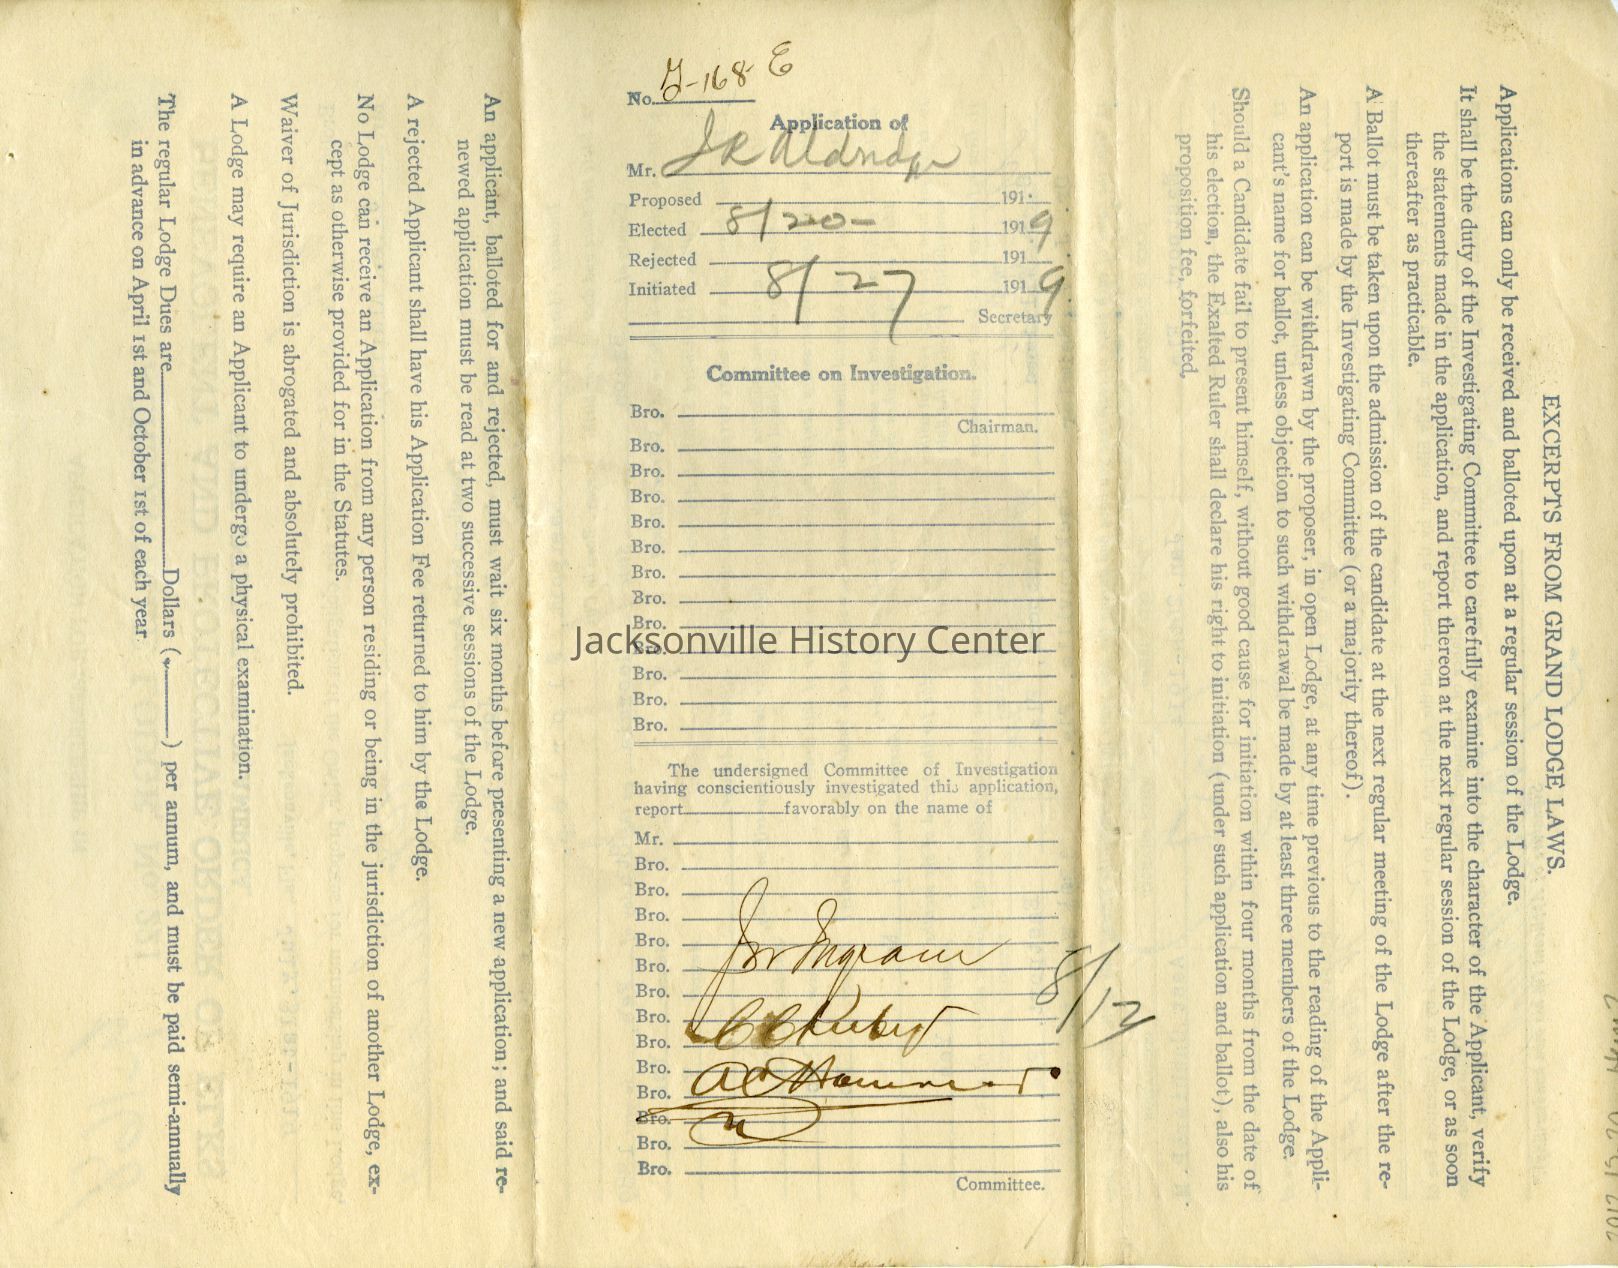 No. G-168 E
Application of
Mr. J R Aldridge
Proposed 191
Elected 8/20- 1919
Rejected 191
Initiated 8/27 1919
Secretary
Committee on Investigation.
Bro.
Chairman.
Bro.
Bro.
Bro.
Bro.
Bro.
Bro.
Bro.
Bro.
Jacksonville History Center
Bro.
Bro.
Bro.
Bro.
The undersigned Committee of Investigation
having conscientiously investigated this application,
report favorably on the name of
Mr.
Bro.
Bro.
Bro.
Bro.
Bro. Ingram
Bro.
Bro. 8/12
Bro.
Bro.
Bro.
Bro.
Bro.
Bro.
Committee.
EXCERPTS FROM GRAND LODGE LAWS.
Applications can only be received and balloted upon at a regular session of the Lodge.
It shall be the duty of the Investigating Committee to carefully examine into the character of the Applicant, verify
the statements made in the application, and report thereon at the next regular session of the Lodge, or as soon
thereafter as practicable.
A Ballot must be taken upon the admission of the candidate at the next regular meeting of the Lodge after the re-
port is made by the Investigating Committee (or a majority thereof).
An application can be withdrawn by the proposer, in open Lodge, at any time previous to the reading of the Appli-
cant's name for ballot, unless objection to such withdrawal be made by at least three members of the Lodge.
Should a Candidate fail to present himself, without good cause for initiation within four months from the date of
his election, the Exalted Ruler shall declare his right to initiation (under such application and ballot), also his
proposition fee, forfeited.
An applicant, balloted for and rejected, must wait six months before presenting a new application; and said re-
newed application must be read at two successive sessions of the Lodge.
A rejected Applicant shall have his Application Fee returned to him by the Lodge.
No Lodge can receive an Application from any person residing or being in the jurisdiction of another Lodge, ex-
cept as otherwise provided for in the Statutes.
Waiver of Jurisdiction is abrogated and absolutely prohibited.
A Lodge may require an Applicant to undergo a physical examination.
The regular Lodge Dues are Dollars ( ) per annum, and must be paid semi-annually
in advance on April 1st and October 1st of each year.